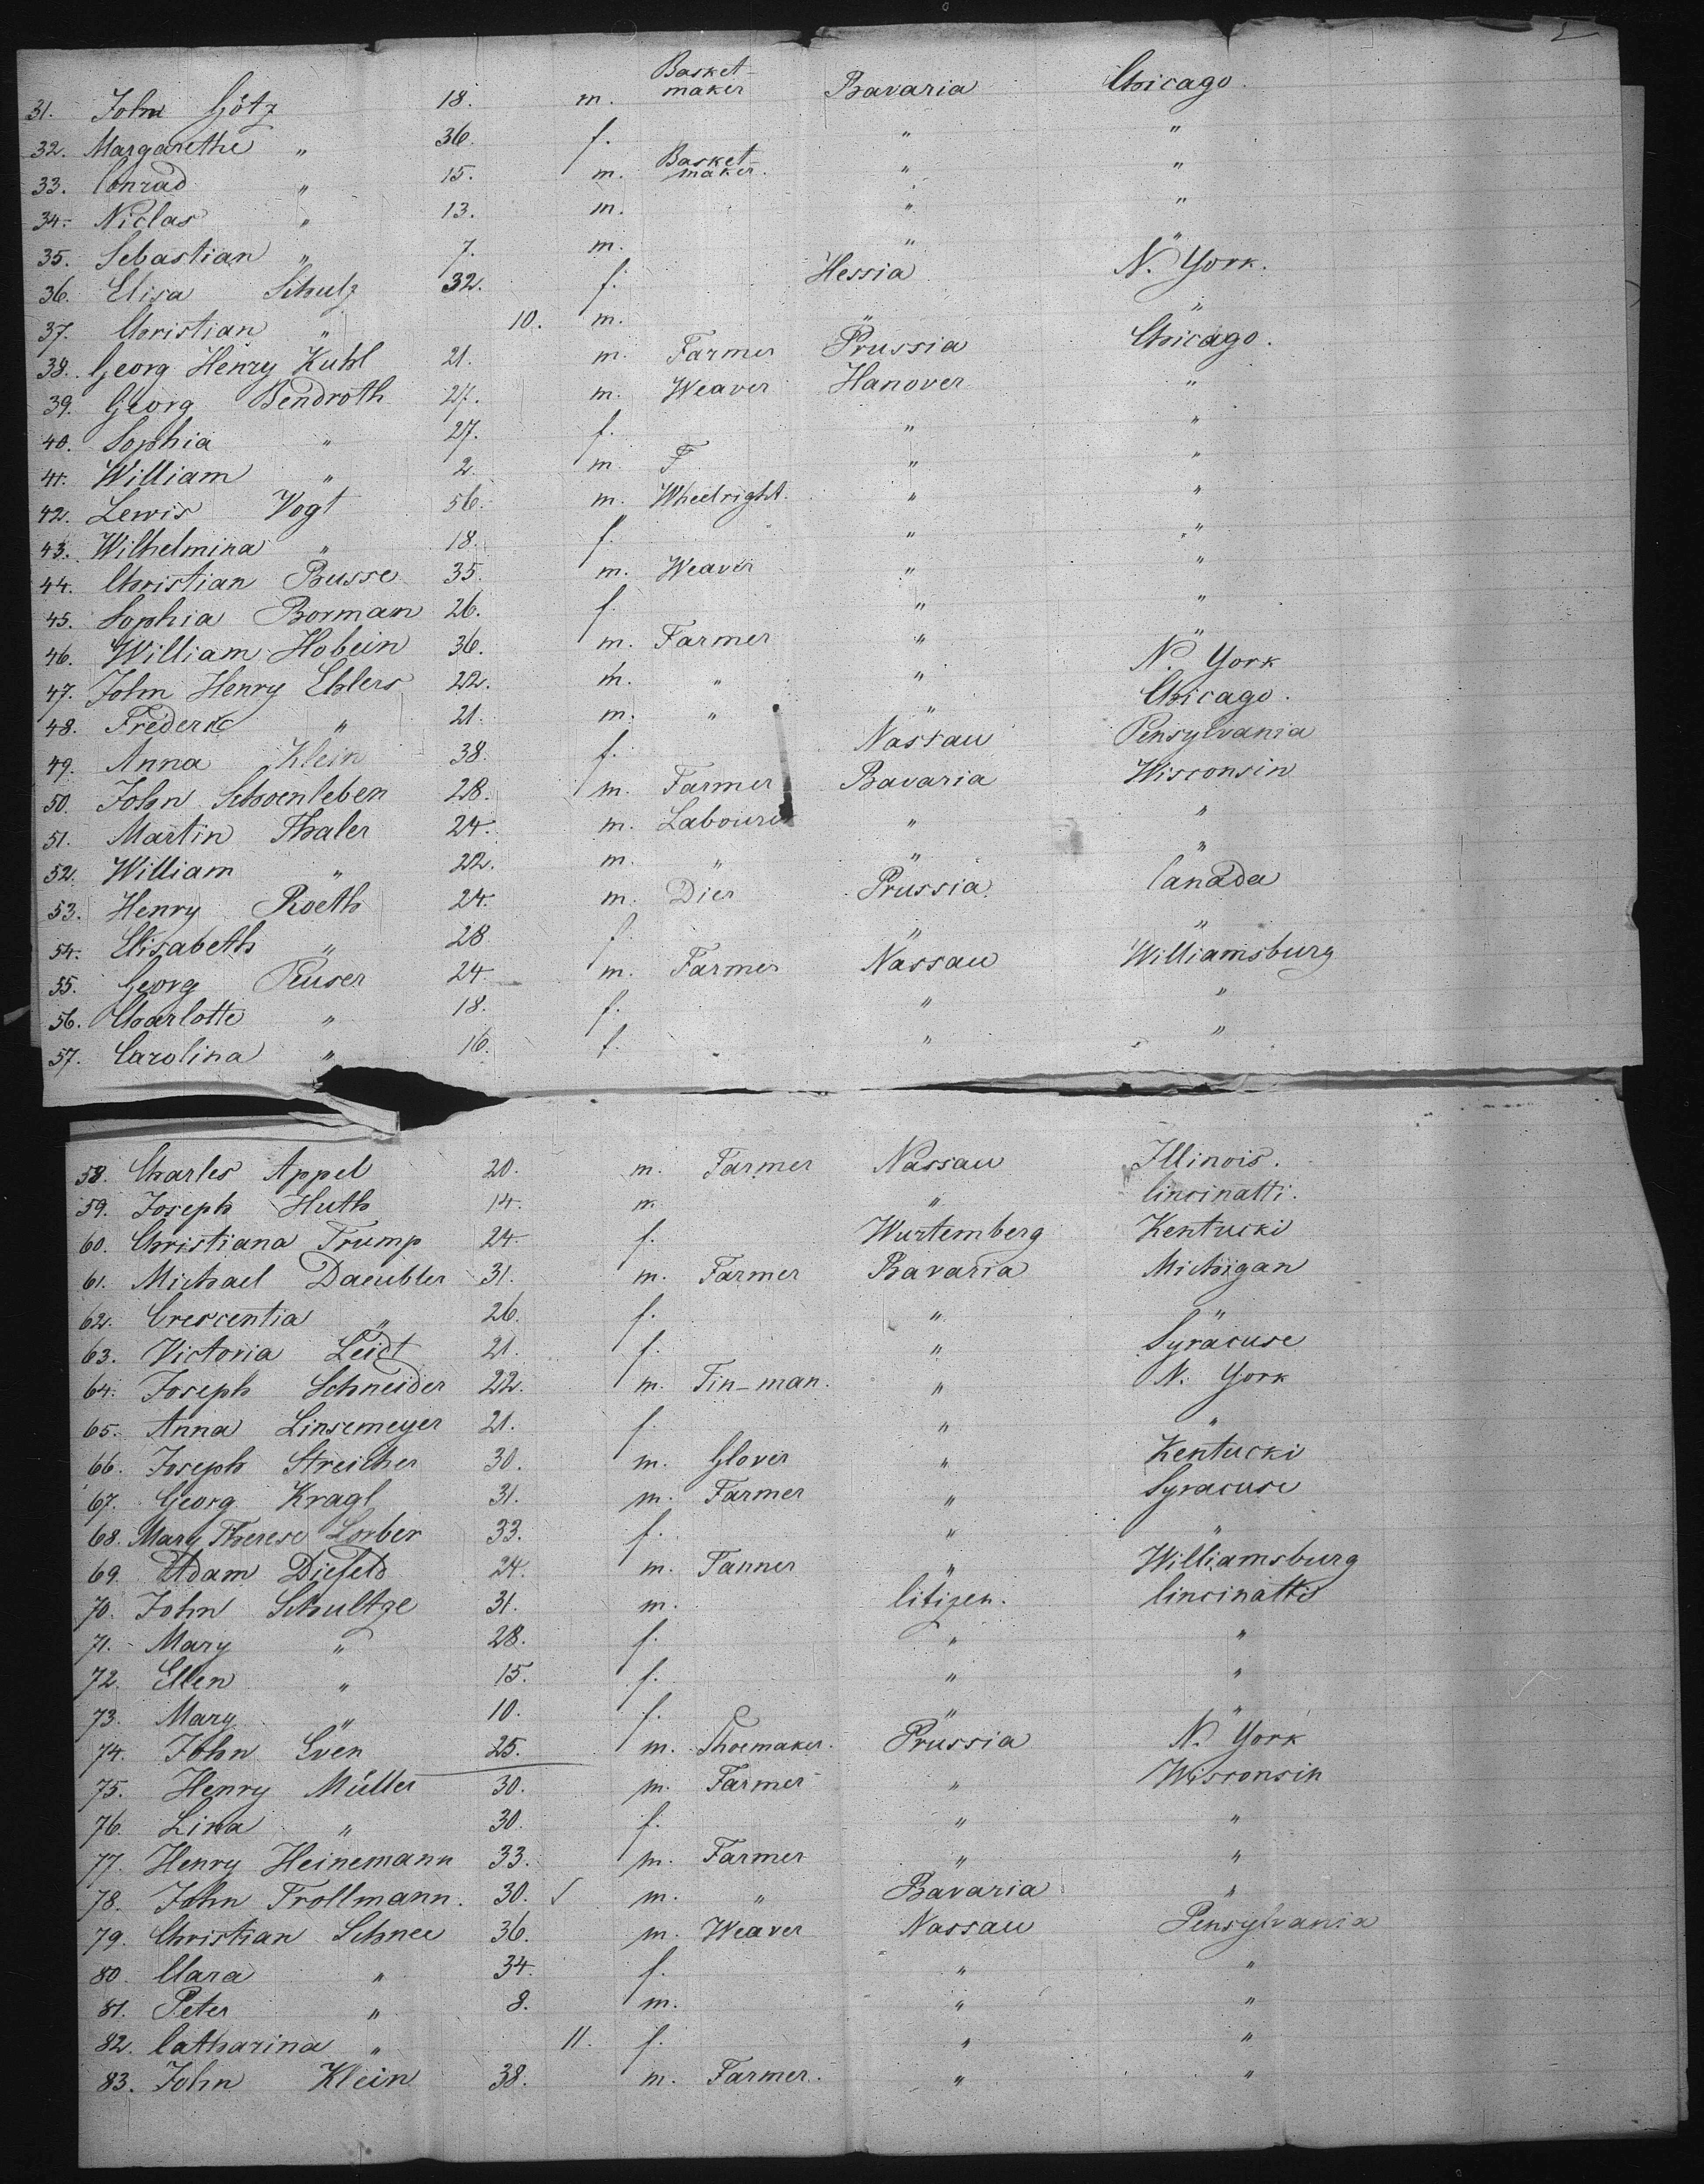 31. John Götz 18. m. Basket-maker Bavaria Chicago.
32. Margarethe " 36. f. " "
33. Conrad " 15. m. Basket-maker. " "
34. Niclas " 13. m. " "
35. Sebastian " 7. m. " "
36. Elisa Schulz 32. f. Hessia N. York.
37. Christian " 10. m. " "
38. Georg Henry Kuhl 21. m. Farmer Prussia Chicago.
39. Georg Bendroth 27. m. Weaver Hanover "
40. Sophia " 27. f. " "
41. William " 2. m. F " "
42. Lewis Vogt 56. m. Wheelright. " "
43. Wilhelmina " 18. f. " "
44. Christian Busse 35. m. Weaver " "
45. Sophia Borman 26. f. " "
46. William Hobein 36. m. Farmer " "
47. John Henry Ehlers 22. m. " " N. York
48. Frederic " 21. m. " " Chicago.
49. Anna Klein 38. f. Nassau Pensylvania
50. John Schoenleben 28. m. Farmer Bavaria Wisconsin
51. Martin Thaler 24. m. Labourer " "
52. William " 22. m. " " "
53. Henry Roeth 24. m. Dier Prussia. Canada
54. Elisabeth " 28 f. " "
55. Georg Peuser 24. m. Farmer Nassau Williamsburg
56. Charlotte " 18. f. " "
57. Carolina " 16. f. " "
58. Charles Appel 20. m. Farmer Nassau Illinois.
59. Joseph Huth 14. m. " Cincinatti.
60. Christiana Trump 24. f. Wurtemberg Kentucki
61. Michael Daeubler 31. m. Farmer Bavaria Michigan
62. Crescentia " 26. f. " "
63. Victoria Leidt 21. f. " Syracuse
64. Joseph Schneider 22. m. Tin-man. " N. York
65. Anna Linsemeyer 21. f. " "
66. Joseph Streicher 30. m. Glover " Kentucki
67. Georg Kragl 31. m. Farmer " Syracuse
68. Mary Therese Lorber 33. f. " "
69. Adam Diefeld 24. m. Tanner " Williamsburg
70. John Schultze 31. m. Citizen. Cincinatti
71. Mary " 28. f. " "
72. Ellen " 15. f. " "
73. Mary " 10. f. " "
74. John Even 25. m. Shoemaker. Prussia N. York
75. Henry Müller 30. m. Farmer " Wisconsin
76. Lina " 30. f. " "
77. Henry Heinemann 33. m. Farmer " "
78. John Trollmann. 30. m. " Bavaria "
79. Christian Schnee 36. m. Weaver Nassau Pensylvania
80. Clara " 34. f. " "
81. Peter " 8. m. " "
82. Catharina " 11. f. " "
83. John Klein 38. m. Farmer. " "